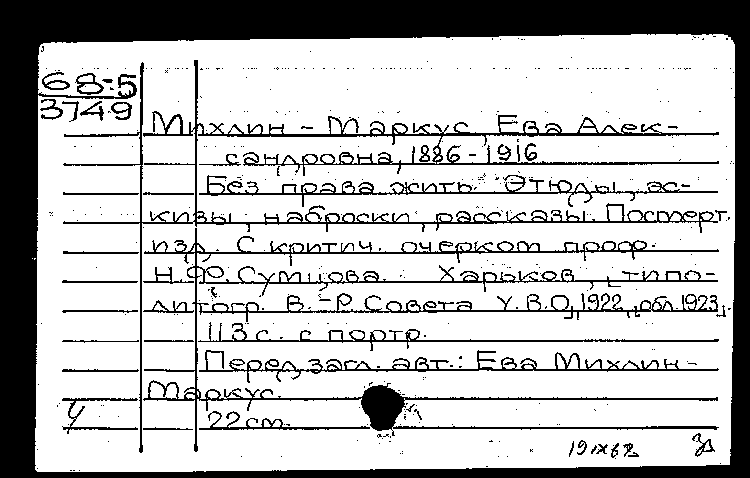 68-5
3749
Михлин - Маркус, Ева Алек-
сандровна, 1886 - 1916
Без права жить. Этюды, эс-
кизы, наброски, рассказы. Посмерт.
изд. С критич. очерком проф.
Н.Ф. Сумцова. Харьков, [типо-
литогр. В.-Р. Совета У.В.О], 1922, [обл. 1923].
113 с. с портр.
Перед загл. авт.: Ева Михлин-
Маркус.
22 см.
19 IX 62